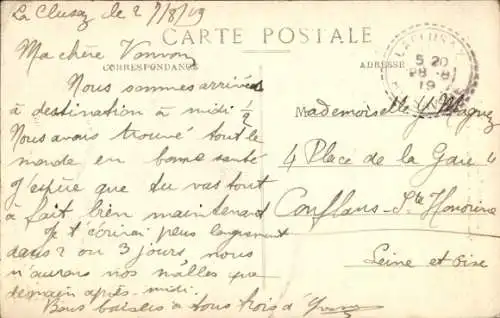 La Clusaz le 27/8/19
CARTE POSTALE
CORRESPONDANCE
ADRESSE
LA CLUSAZ
5 20
28 -8
19
Ma chère Vonvon
Nous sommes arrivées
à destination à midi 1/2
Nous avons trouvé tout le
monde en bonne santé
J'espère que tu vas tout
à fait bien maintenant
Je t'écrirai plus longuement
dans 2 ou 3 jours, nous
n'aurons nos malles que
demain après-midi.
Bons baisers à tous trois d'Yvonne
Mademoiselle Y.
4 Place de la Gare 4
Conflans-Ste Honorine
Seine et Oise